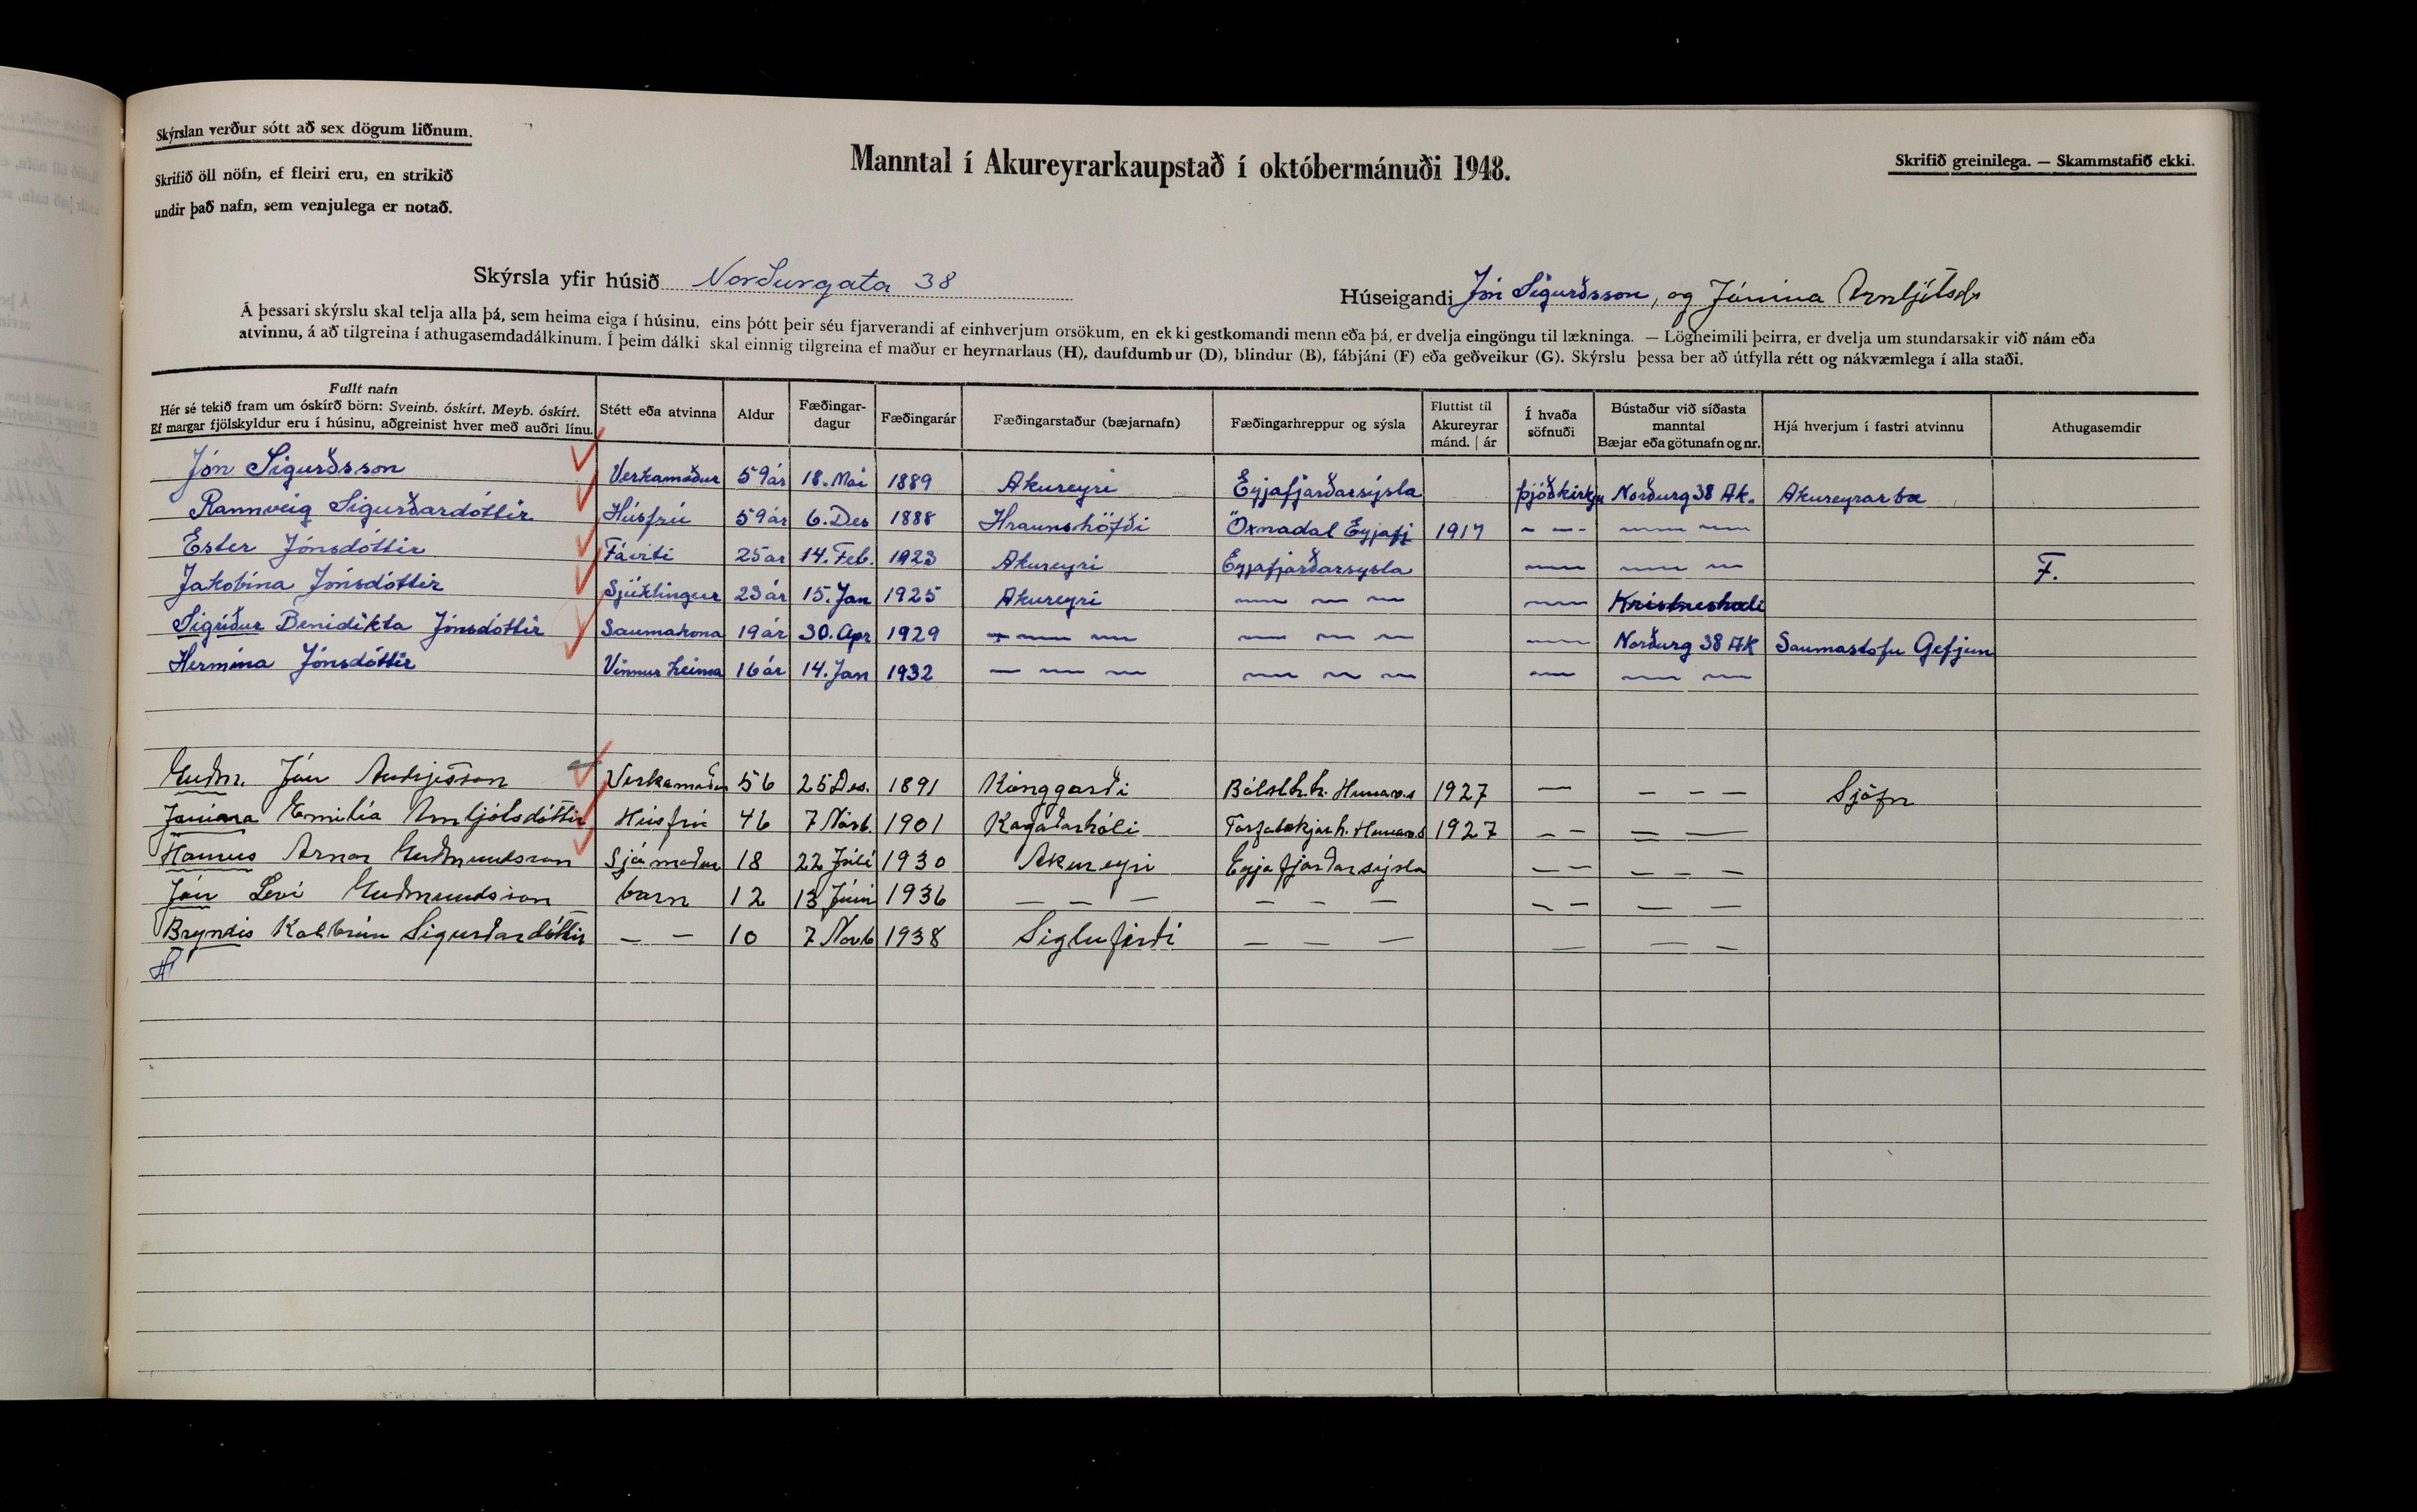 Skýrslan verður sótt að sex dögum liðnum.
Skrifið öll nöfn, ef fleiri eru, en strikið
undir það nafn, sem venjulega er notað.
Manntal í Akureyrarkaupstað í októbermánuði 1948.
Skrifið greinilega. — Skammstafið ekki.
Skýrsla yfir húsið Norðurgata 38
Húseigandi Jón Sigurðsson, og Jónína Arnljótsd
Á þessari skýrslu skal telja alla þá, sem heima eiga í húsinu, eins þótt þeir séu fjarverandi af einhverjum orsökum, en ekki gestkomandi menn eða þá, er dvelja eingöngu til lækninga. — Lögheimili þeirra, er dvelja um stundarsakir við nám eða
atvinnu, á að tilgreina í athugasemdadálkinum. Í þeim dálki skal einnig tilgreina ef maður er heyrnarlaus (H), daufdumbur (D), blindur (B), fábjáni (F) eða geðveikur (G). Skýrslu þessa ber að útfylla rétt og nákvæmlega í alla staði.
Fullt nafn
Hér sé tekið fram um óskírð börn: Sveinb. óskírt. Meyb. óskírt.
Ef margar fjölskyldur eru í húsinu, aðgreinist hver með auðri línu.
Stétt eða atvinna
Aldur
Fæðingar-
dagur
Fæðingarár
Fæðingarstaður (bæjarnafn)
Fæðingarhreppur og sýsla
Fluttist til
Akureyrar
mánd. | ár
Í hvaða
söfnuði
Bústaður við síðasta
manntal
Bæjar eða götunafn og nr.
Hjá hverjum í fastri atvinnu
Athugasemdir
Jón Sigurðsson Verkamaður 59 ár 18. Mai 1889 Akureyri Eyjafjarðarsýsla Þjóðkirkju Norðurg 38 Ak. Akureyrarbæ
Rannveig Sigurðardóttir Húsfrú 59 ár 6. Des 1888 Hraunshöfði Öxnadal Eyjafj 1917 - - - — —
Ester Jónsdóttir Fáviti 25 ár 14. Feb. 1923 Akureyri Eyjafjarðarsysla — — — F.
Jakobína Jónsdóttir Sjúklingur 23 ár 15. Jan 1925 Akureyri — — — — Kristneshæli
Sigríður Benidikta Jónsdóttir Saumakona 19 ár 30. Apr 1929 — — — — — — — Norðurg 38 AK Saumastofu Gefjun
Hermína Jónsdóttir Vinnur heima 16 ár 14. Jan 1932 — — — — — — — — —
Guðm. Jón Verkamaður 56 25 Des. 1891 1927 — - - - Sjöfn
Jónína Emilía Arnljótsdóttir Húsfrú 46 7 Nóvb. 1901 Kagaðarhóli Torfalækjar h. Húnav.s 1927 - - — —
Hannes Arnar Guðmundsson Sjómaður 18 22 Júlí 1930 Akureyri Eyjafjarðarsýsla - - - - -
Jón Leví Guðmundsson barn 12 13 Júní 1936 - - - - - - - - - - -
Bryndís Kolbrún Sigurðardóttir - - 10 7 Novb 1938 Siglufirði - - - - - -